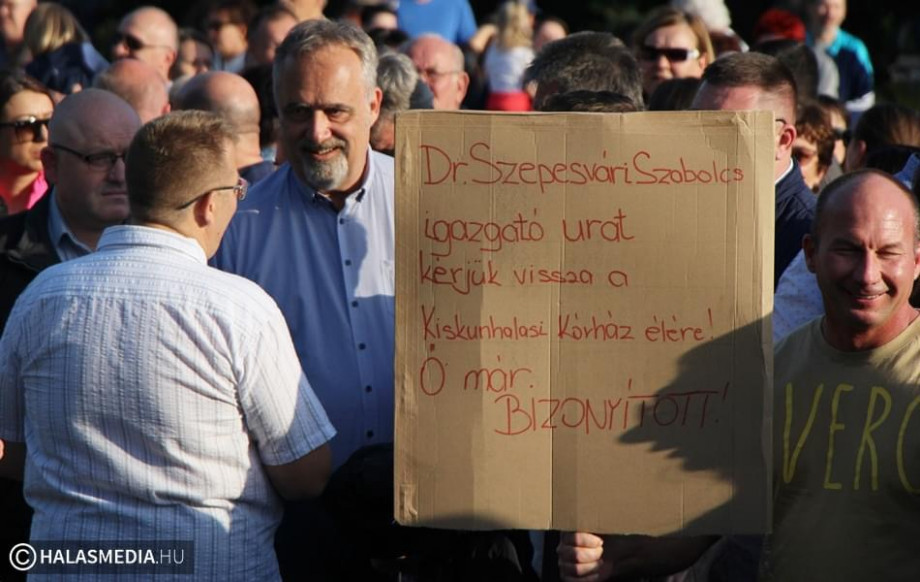 Dr. Szepesvári Szabolcs
igazgató urat
kérjük vissza a
Kiskunhalasi Kórház élére!
Ő már.
BIZONYÍTOTT!
VERO
© HALASMEDIA.HU